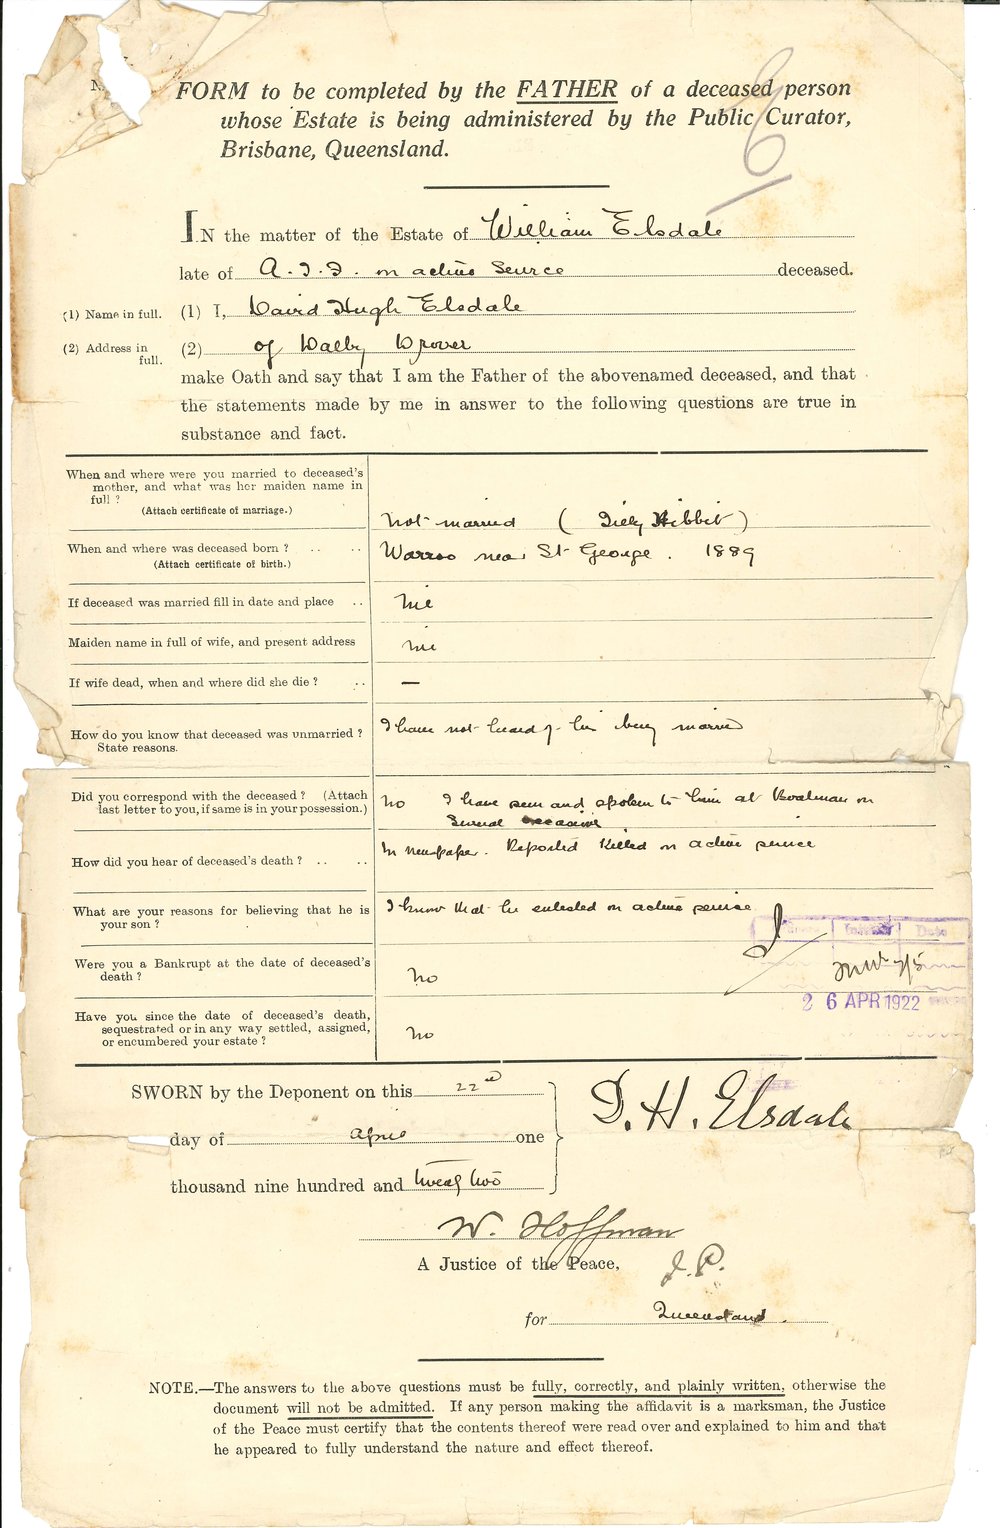 FORM to be completed by the FATHER of a deceased person
whose Estate is being administered by the Public Curator,
Brisbane, Queensland.
IN the matter of the Estate of William Elsdale
late of A.I.F. on active Service deceased.
(1) Name in full. (1) I, David Hugh Elsdale
(2) Address in full. (2) of Dalby Drover
make Oath and say that I am the Father of the abovenamed deceased, and that
the statements made by me in answer to the following questions are true in
substance and fact.
When and where were you married to deceased's
mother, and what was her maiden name in
full ?
(Attach certificate of marriage.)
Not married ( Hibbit )
When and where was deceased born ? .. ..
(Attach certificate of birth.)
Warroo near St George . 1889
If deceased was married fill in date and place ..
Maiden name in full of wife, and present address
If wife dead, when and where did she die ? ..
—
How do you know that deceased was unmarried ?
State reasons.
I have not heard of his being married
Did you correspond with the deceased ? (Attach
last letter to you, if same is in your possession.)
No I have seen and spoken to him at on
Several occasions
How did you hear of deceased's death ? .. ..
In newspaper. Reported Killed on active service
What are your reasons for believing that he is
your son ?
I know that he enlisted on active service
Were you a Bankrupt at the date of deceased's
death ?
No
Date
26 APR 1922
Have you since the date of deceased's death,
sequestrated or in any way settled, assigned,
or encumbered your estate ?
No
SWORN by the Deponent on this 22nd
day of April one
thousand nine hundred and twenty two
D. H. Elsdale
W. Hoffman
A Justice of the Peace, J.P.
for Queensland.
NOTE.—The answers to the above questions must be fully, correctly, and plainly written, otherwise the
document will not be admitted. If any person making the affidavit is a marksman, the Justice
of the Peace must certify that the contents thereof were read over and explained to him and that
he appeared to fully understand the nature and effect thereof.